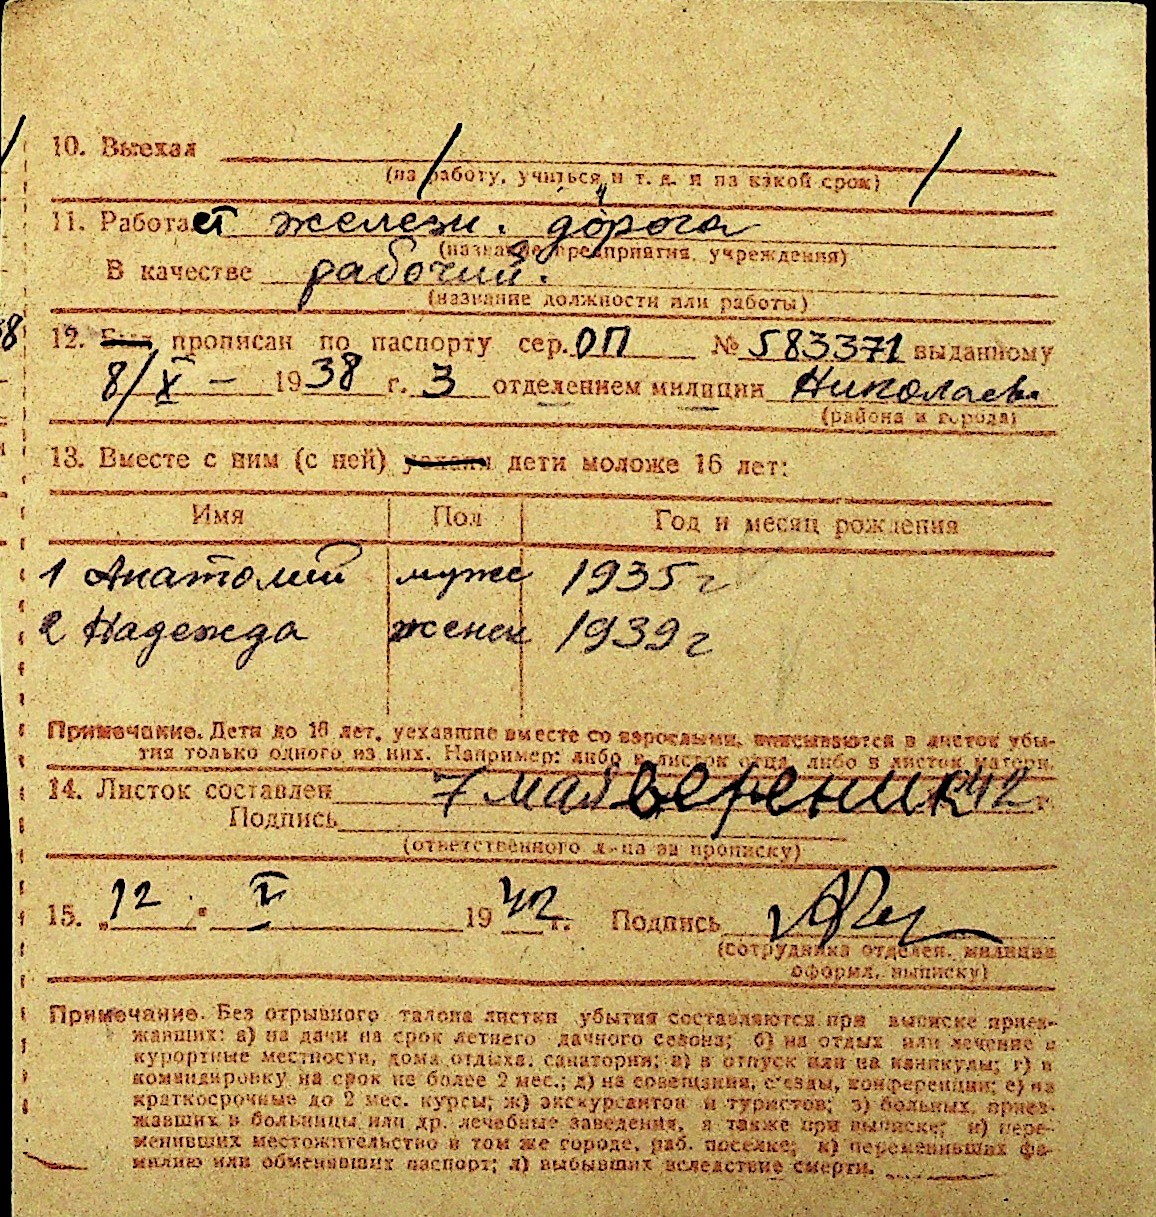 10. Выехал
(на работу, учиться и т. д. и на какой срок)
11. Работает железн. дорога
(название предприятия, учреждения)
В качестве рабочий.
(название должности или работы)
12. Был прописан по паспорту сер. ОП № 583371 выданному
8/X – 1938 г. 3 отделением милиции Николаев.
(района и города)
13. Вместе с ним (с ней) уехали дети моложе 16 лет:
Имя Пол Год и месяц рождения
1 Анатолий мужс 1935 г
2 Надежда женск 1939 г
Примечание. Дети до 16 лет, уехавшие вместе со взрослыми, вписываются в листок убы-
тия только одного из них. Например: либо в листок отца, либо в листок матери.
14. Листок составлен 7 мая 42 г.
Подпись Вереник
(ответственного лица за прописку)
15. „12 " V 1942 г. Подпись
(сотрудника отделен. милиции
оформл. выписку)
Примечание. Без отрывного талона листки убытия составляются при выписке приез-
жавших: а) на дачи на срок летнего дачного сезона; б) на отдых или лечение в
курортные местности, дома отдыха, санатории; в) в отпуск или на каникулы; г) в
командировку на срок не более 2 мес.; д) на совещания, с'езды, конференции; е) на
краткосрочные до 2 мес. курсы; ж) экскурсантов и туристов; з) больных, приез-
жавших в больницы или др. лечебные заведения, а также при выписке; и) пере-
менивших местожительство в том же городе, раб. поселке; к) переменивших фа-
милию или обменявших паспорт; л) выбывших вследствие смерти.